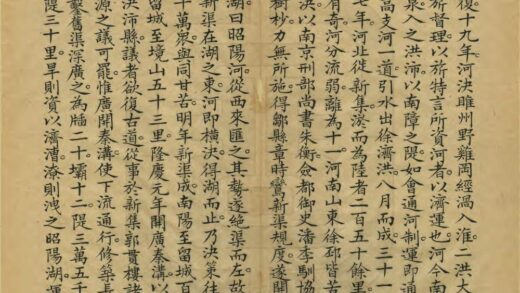 復十九年河決睢州野雞岡經渦入淮二洪大
所督理以旂特言所資河者以濟運也河今南
泉入之洪沛以南障之隄如會通河制運即通
高支河一道引水出徐濟洪八月而成三十一
七年河北徙新集淤而為陸者二百五十餘里
有奇河分流弱離為十一河南山東徐邳皆苦
決以南京刑部尚書朱衡僉都御史潘季馴協
樹杪力無所施得鄒縣章時鸞新渠規度遂開
湖曰昭陽河從西來匯之其勢遂絕渠而左故
新渠在湖之東河即橫決得湖而止乃決策往
十萬衆與同甘苦明年新渠成南陽至留城百
留城至境山五十三里隆慶元年開廣秦溝以
決沛縣議者欲復古道從事於新集郭貫樓諸
源之議可罷惟廣開秦溝使下流通行修築長
鑿舊渠深廣之為牐二十壩十二隄三萬五千
隄三十里旱則資以濟漕潦則洩之昭陽湖運